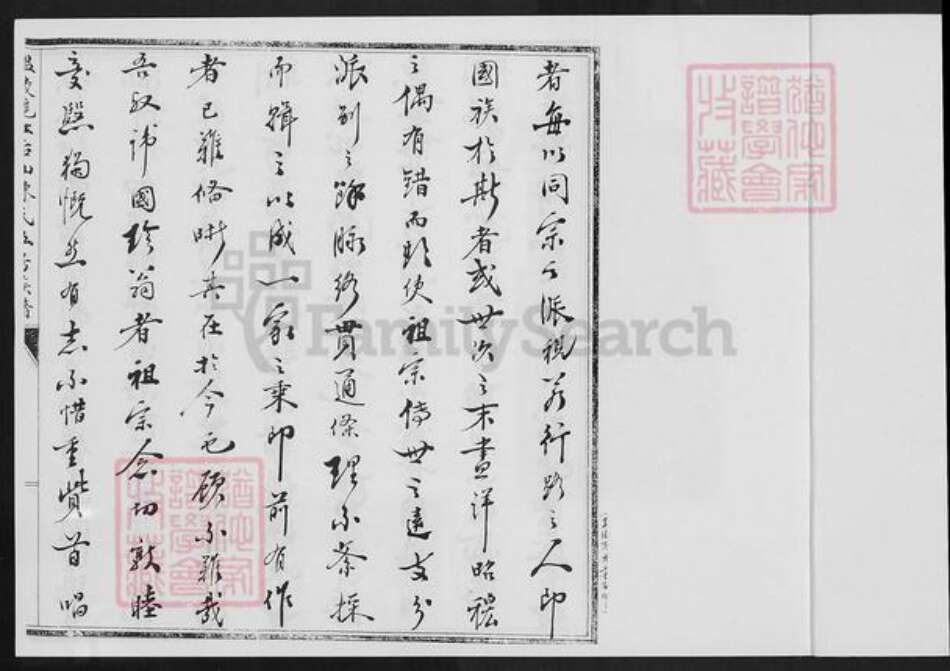 者每以同宗之派視若行路之人即
國族於斯者或世次之未盡詳昭穆
之偶有錯而欲使祖宗傳世之遠支分
派別之餘脉絡貫通條理不紊採
而輯之以成一家之乘即前有作
者已難條晰其在於今也顧不難哉
吾叔諱國珍翁者祖宗念切敦睦
意熙獨慨然有志不惜重貲首唱
譜學會
收藏
FamilySearch